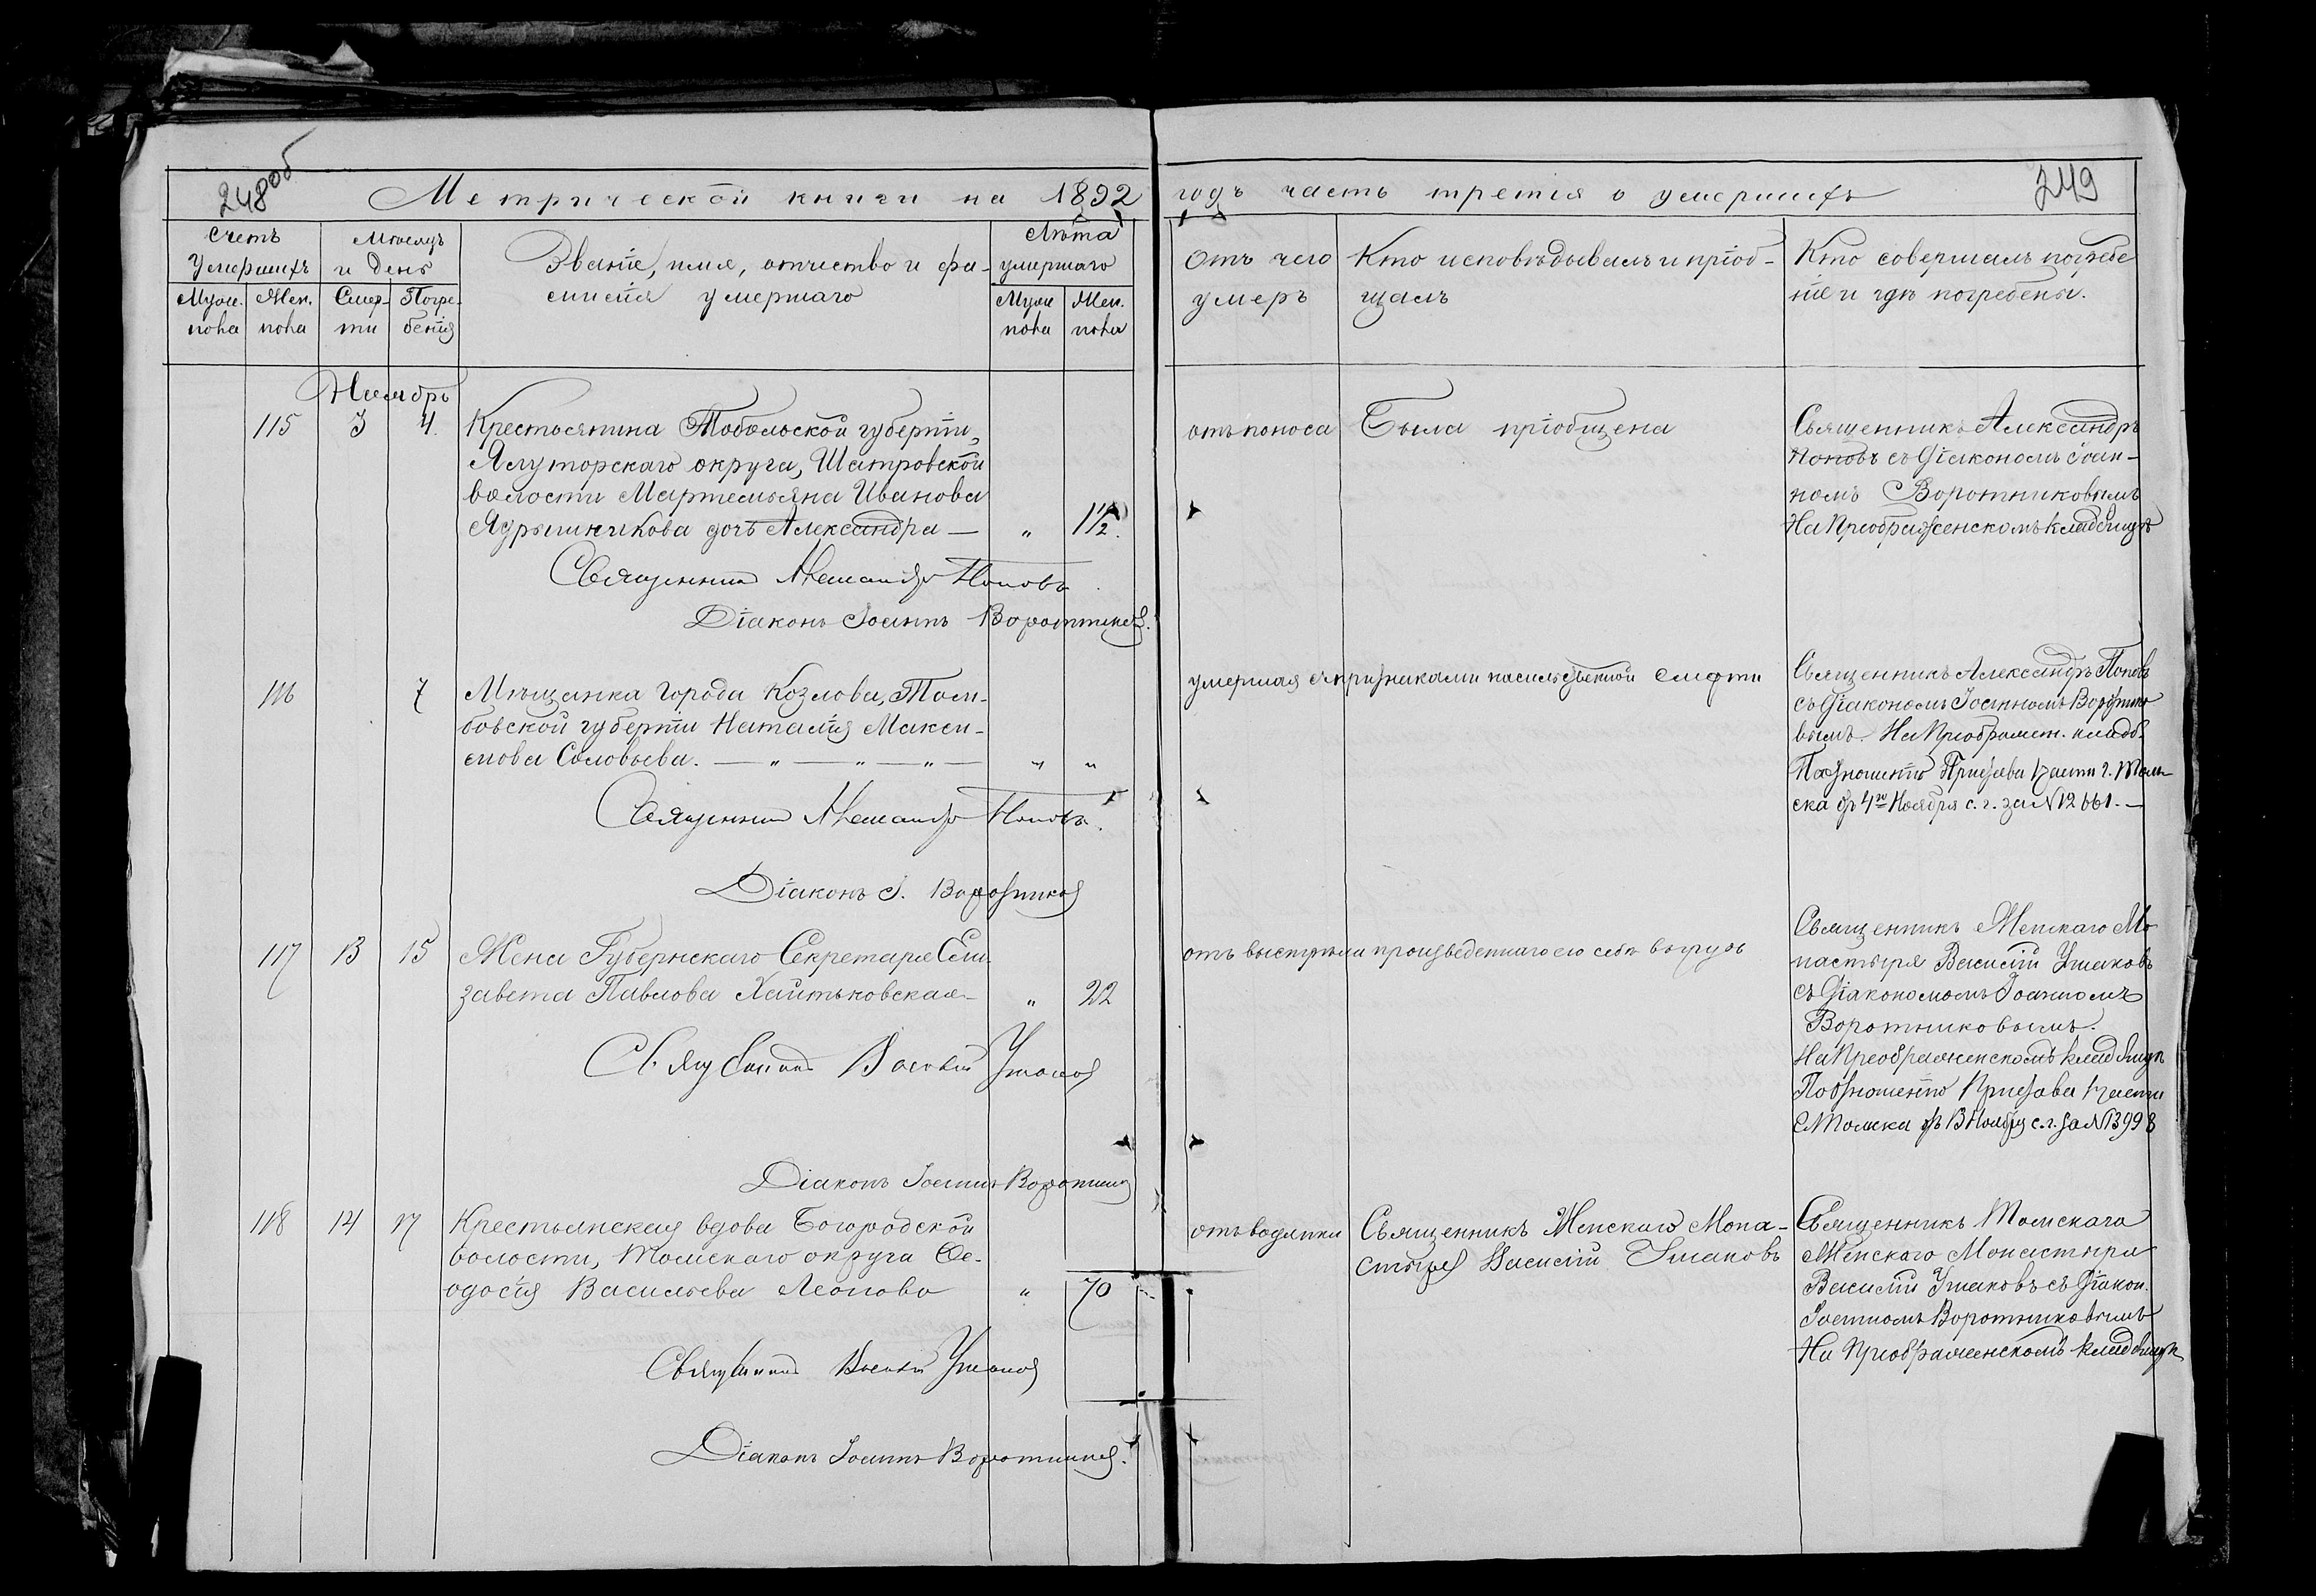 248об
Метрической книги на 1892
годъ часть третія о умершихъ
249
Счетъ умершихъ
Муж. пола
Жен. пола
Мѣсяцъ и день
Смерти
Погребенія
Званіе, имя, отчество и фамилія умершаго
Лѣта умершаго
Муж. пола
Жен. пола
Отъ чего умеръ
Кто исповѣдывалъ и пріобщалъ
Кто совершалъ погребеніе и гдѣ погребены.
Ноябрь
115 3 4.
Крестьянина Тобольской губерніи,
Ялуторскаго округа, Шатровской
волости Мартемьяна Иванова
Ядрышникова дочь Александра — „ 1½.
отъ поноса
Была пріобщена
Священникъ Александръ
Поповъ съ Діакономъ Іоан-
номъ Воротниковымъ
На Преображенскомъ кладбищѣ
Священникъ Александръ Поповъ
Діаконъ Іоаннъ Воротников.
116 7
Мѣщанка города Козлова, Там-
бовской губерніи Наталія Макси-
мова Соловьева. — „ — „ — „ — „ „
умершая съ признаками насильственной смерти
Священникъ Александръ Поповъ
съ Діакономъ Іоанномъ Воротнико
вымъ. На Преображен. кладб.
По отношенію Пристава части г. Том-
ска отъ 4го Ноября с. г. за N 12661. —
Священникъ Александръ Поповъ.
Діаконъ І. Воротников
117 13 15
Жена Губернскаго Секретаря Ели-
завета Павлова Хайтьковская — „ 22
отъ выстрѣла произведеннаго ею себѣ въ грудь
Священникъ Женскаго Мо
настыря Василій Ушаковъ
съ Діакономъ Іоанномъ
Воротниковымъ.
На Преображенскомъ кладбищѣ
По отношенію Пристава части
г. Томска отъ 13 Ноября с. г. за N 13998
Священникъ Василій Ушаков
Діаконъ Іоаннъ Воротников
118 14 17
Крестьянская вдова Богородской
волости, Томскаго округа Ѳе-
одосія Васильева Леонова „ 70
отъ водянки
Священникъ Женскаго Мона-
стыря Василій Ушаковъ
Священникъ Томскаго
Женскаго Монастыря
Василій Ушаковъ съ Діакон.
Іоанномъ Воротниковымъ
На Преображенскомъ кладбищѣ
Священникъ Василій Ушаков
Діаконъ Іоаннъ Воротников.